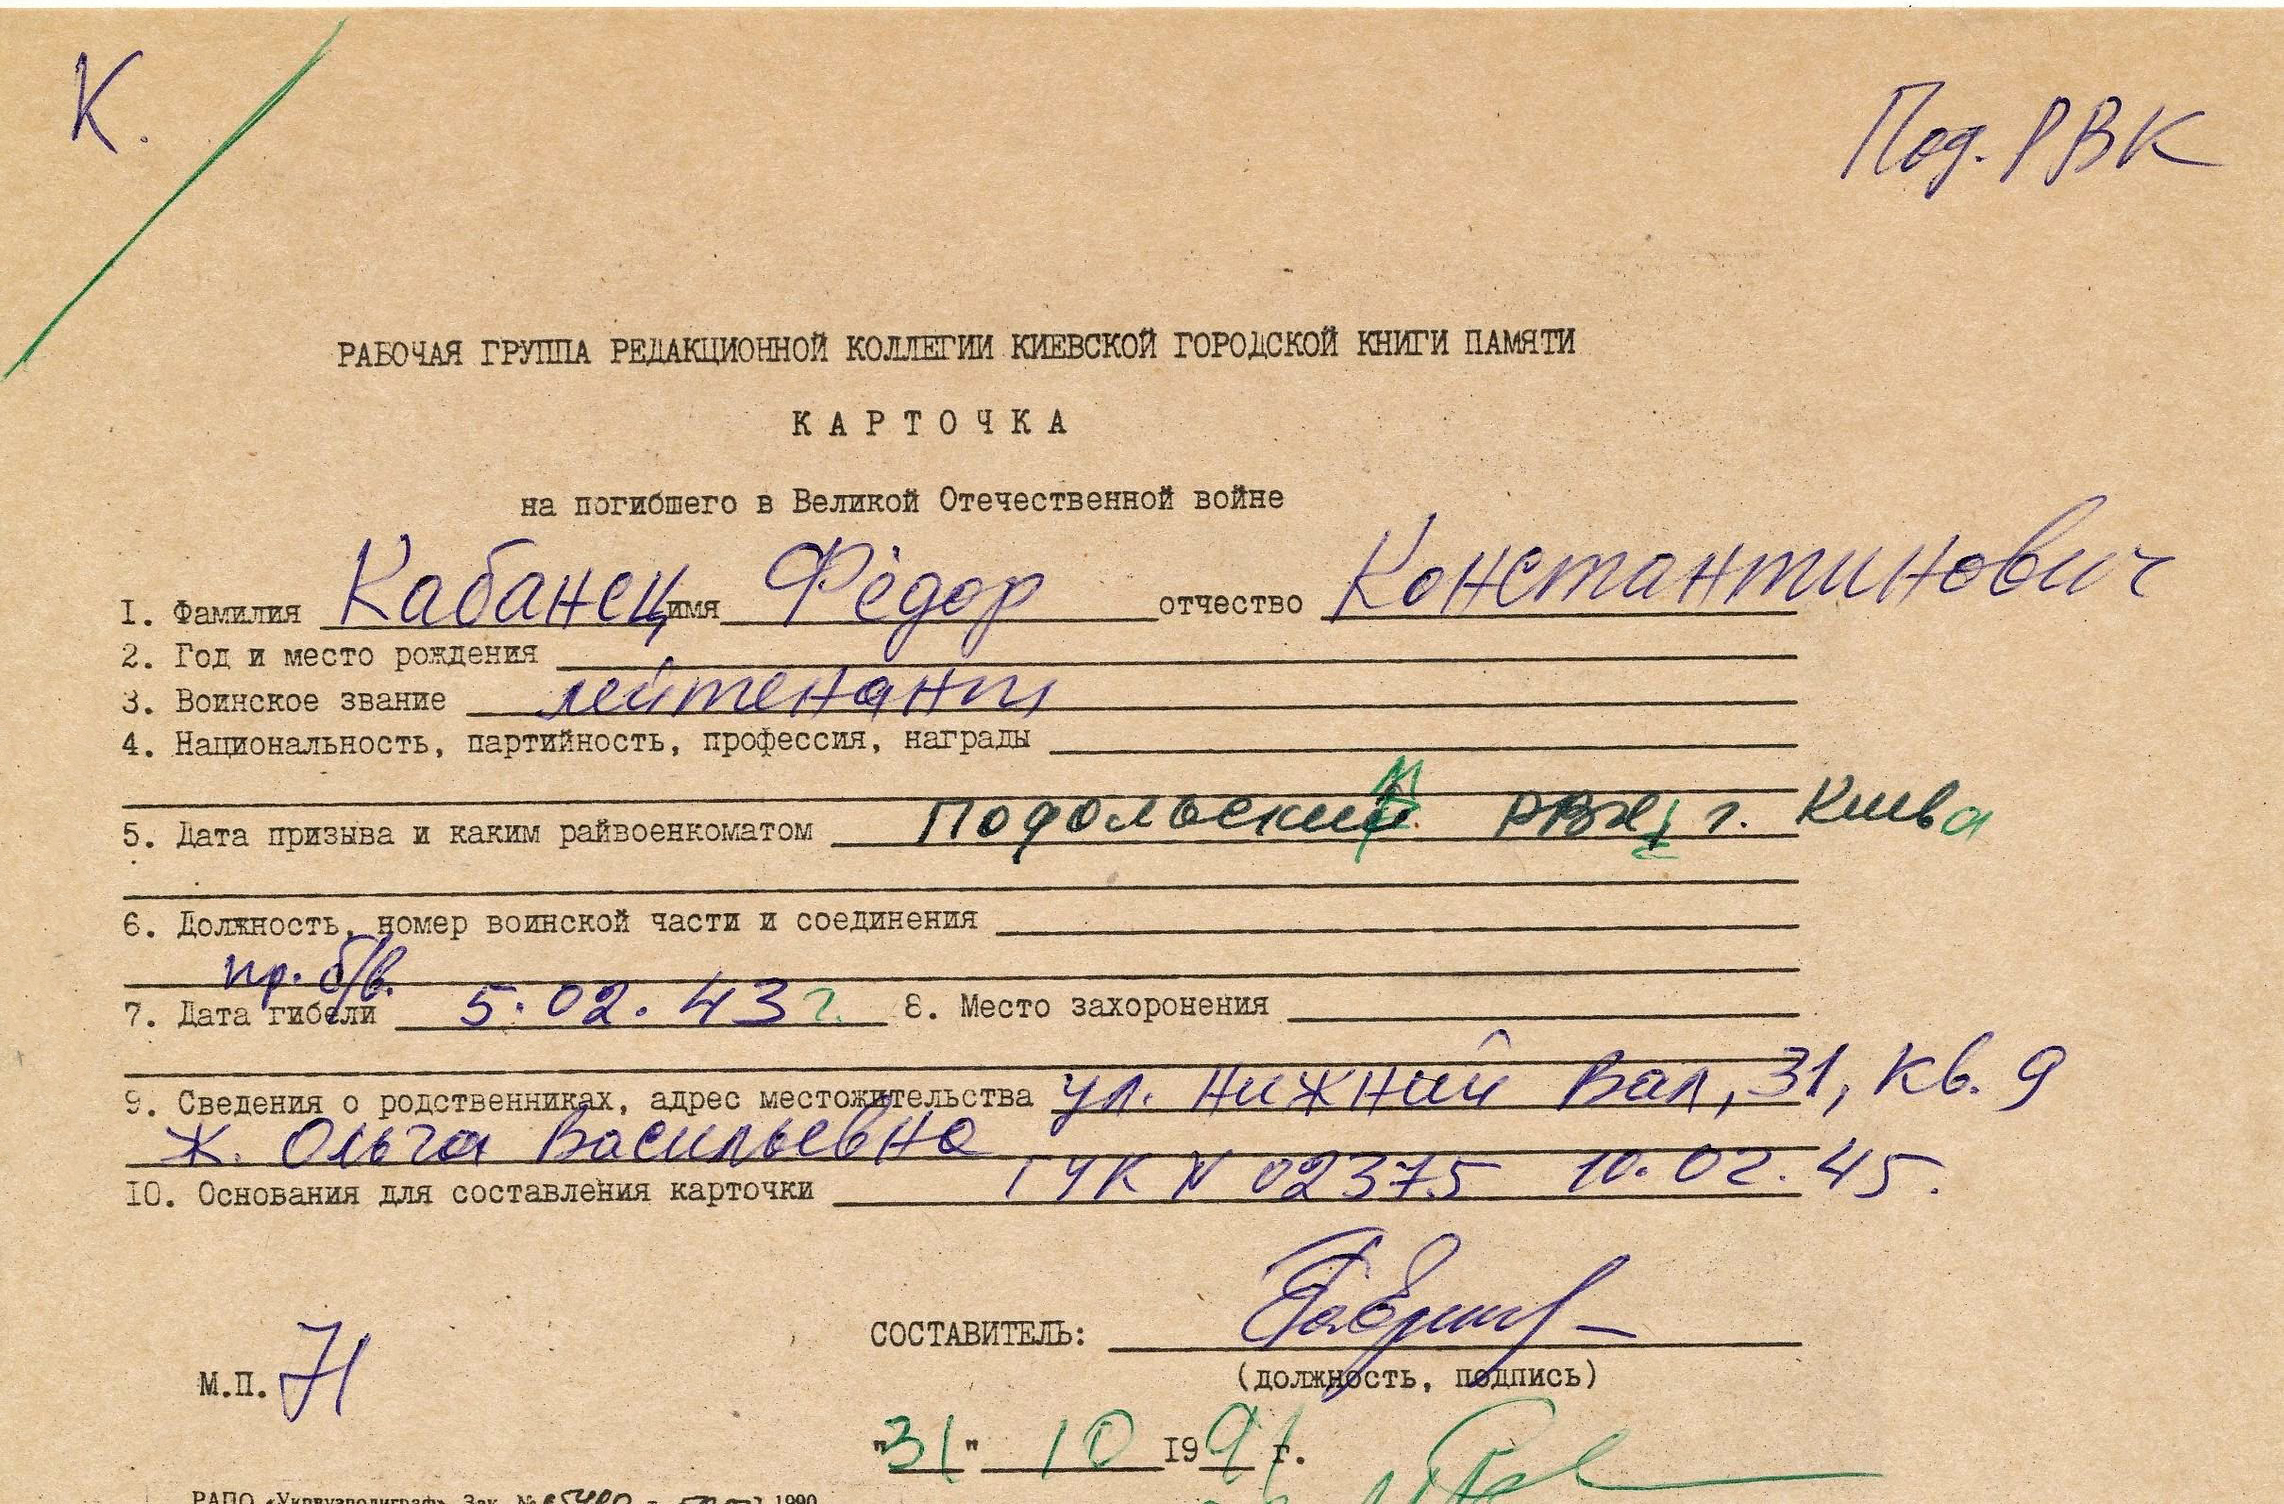 К.
Под. РВК
РАБОЧАЯ ГРУППА РЕДАКЦИОННОЙ КОЛЛЕГИИ КИЕВСКОЙ ГОРОДСКОЙ КНИГИ ПАМЯТИ
КАРТОЧКА
на погибшего в Великой Отечественной войне
I. Фамилия Кабанец имя Фёдор отчество Константинович
2. Год и место рождения
3. Воинское звание лейтенант
4. Национальность, партийность, профессия, награды
5. Дата призыва и каким райвоенкоматом Подольский РВК г. Киева
6. Должность, номер воинской части и соединения
пр. б/в.
7. Дата гибели 5.02.43 г. 8. Место захоронения
9. Сведения о родственниках, адрес местожительства ул. Нижний Вал, 31, кв. 9
ж. Ольга Васильевна
10. Основания для составления карточки ГУК N 02375 10.02.45.
СОСТАВИТЕЛЬ:
(должность, подпись)
М.П.
"31" 10 1991 г.
РАПО «Укрвузполиграф» Зак. № 1990